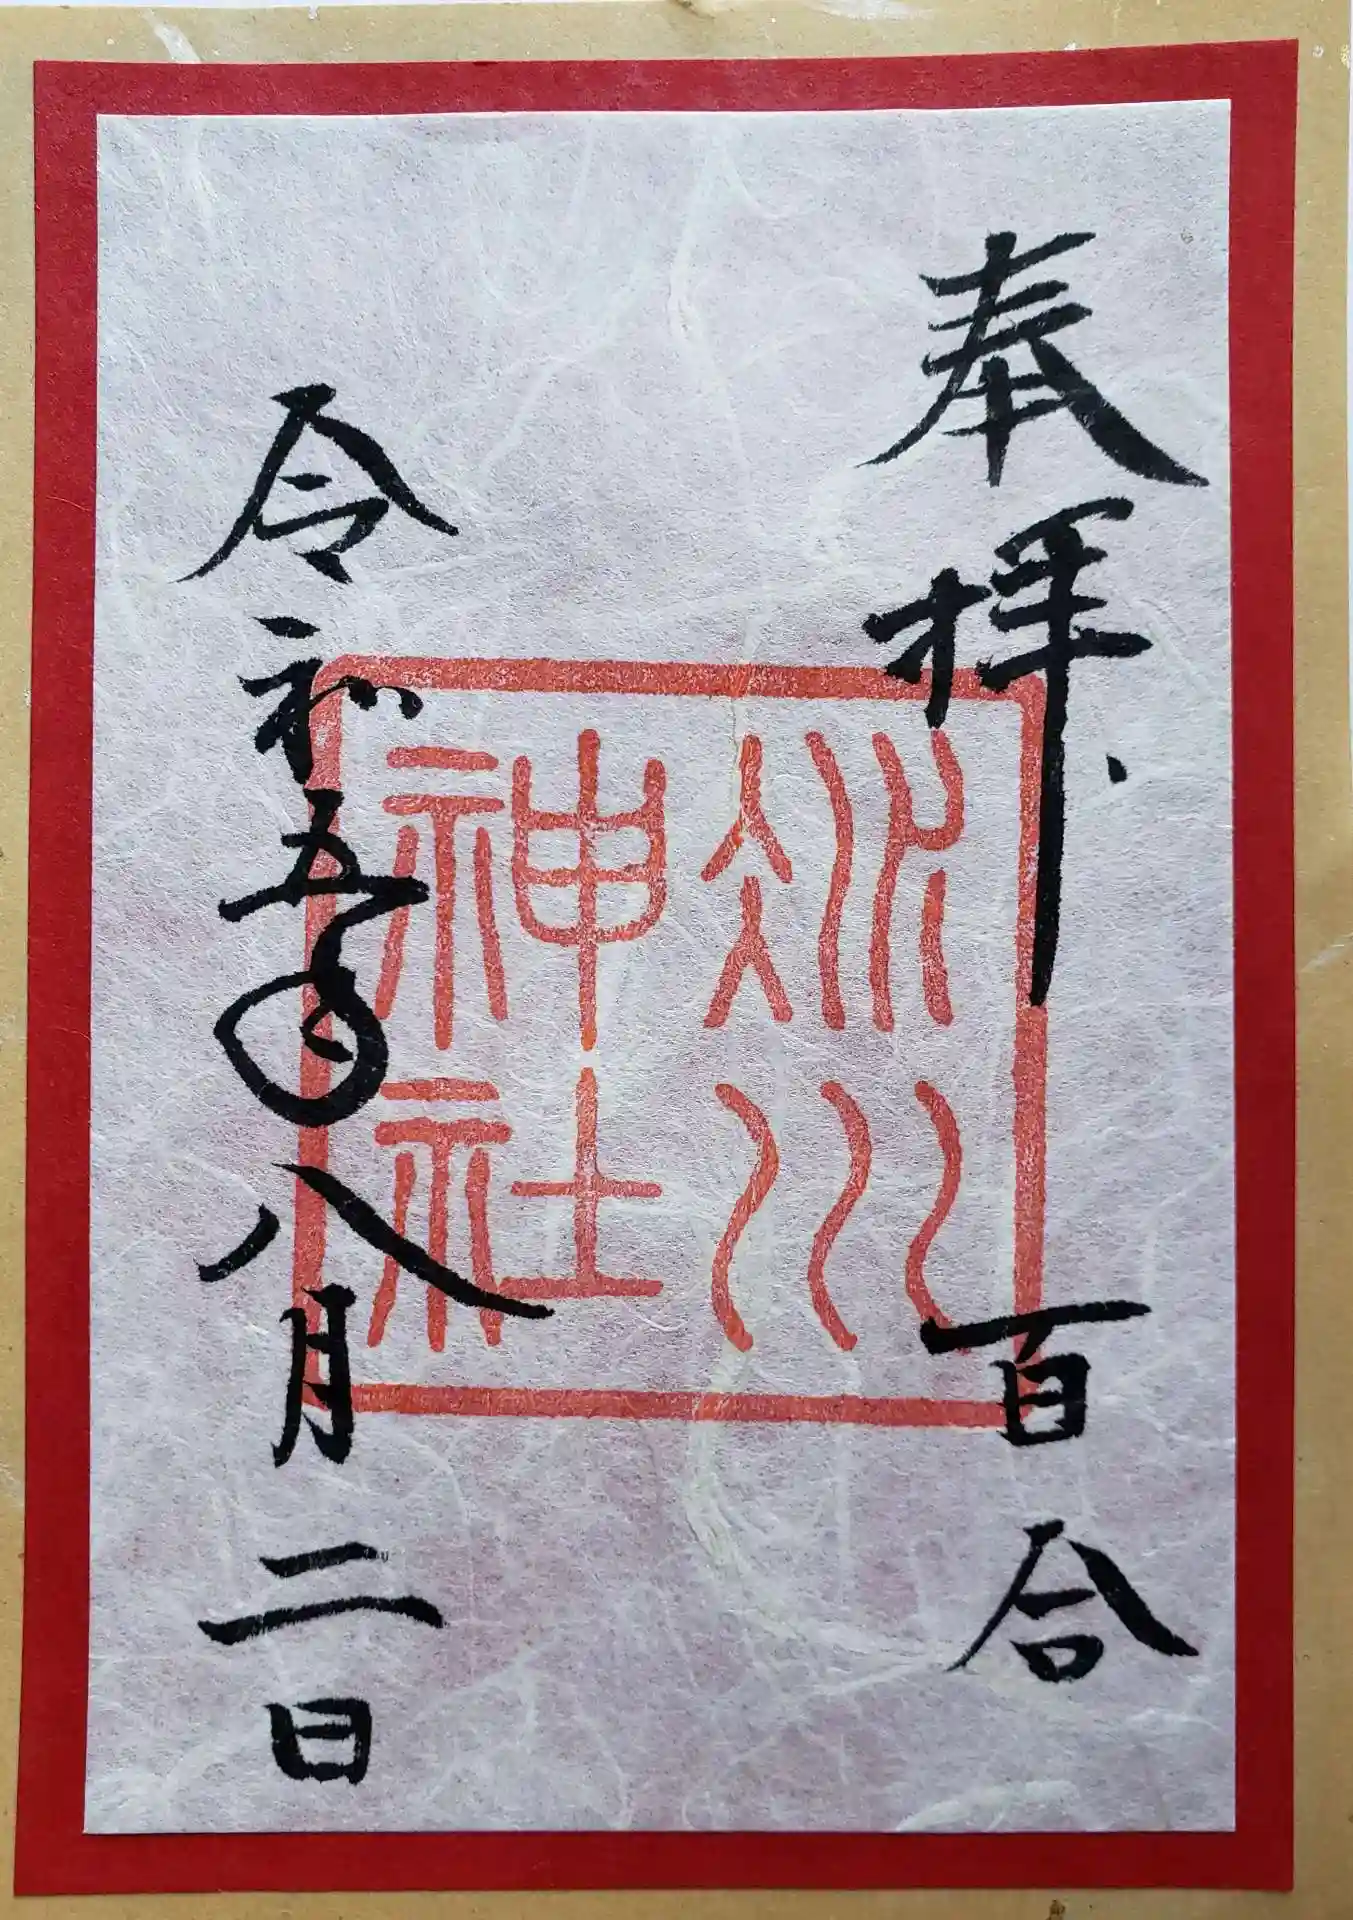 奉拝 百合
氷川
神社
令和五年八月二日